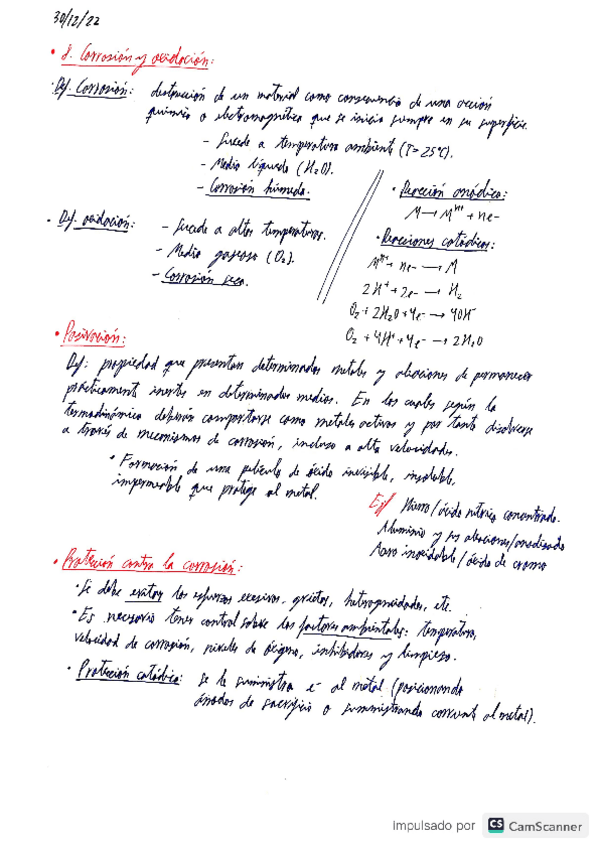 30/12/22
• 8. Corrosión y oxidación:
• Def. Corrosión: destrucción de un material como consecuencia de una acción
química o electromagnética que se inicia siempre en su superficie.
- Sucede a temperatura ambiente (T = 25ºC).
- Medio líquido (H₂O).
- Corrosión húmeda.
• Def. oxidación: - Sucede a altas temperaturas.
- Medio gaseoso (O₂).
- Corrosión seca.
• Reacción anódica:
M → Mⁿ⁺ + ne-
• Reacciones catódicas:
Mⁿ⁺ + ne- → M
2H⁺ + 2e- → H₂
O₂ + 2H₂O + 4e- → 4OH⁻
O₂ + 4H⁺ + 4e- → 2H₂O
• Pasivación:
Def: propiedad que presentan determinados metales y aleaciones de permanecer
prácticament inertes en determinados medios. En los cuales según la
termodinámica deberían comportarse como metales activos y por tanto disolverse
a través de mecanismos de corrosión, incluso a alta velocidades.
• Formación de una película de óxido invisible, insoluble,
impermeable que protege al metal.
Ej/ Hierro/ácido nítrico concentrado.
Aluminio y sus aleaciones/anodizado
Acero inoxidable/óxido de cromo
• Protección contra la corrosión:
• Se debe evitar los esfuerzos excesivos, grietas, heterogeneidades, etc.
• Es necesario tener control sobre los factores ambientales: temperatura,
velocidad de corrosión, niveles de oxígeno, inhibidores y limpieza.
• Protección catódica: se le suministra e- al metal (posicionando
ánodos de sacrificio o suministrando corriente al metal).
Impulsado por CS CamScanner